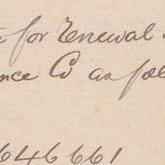 for Renewal
nce Co as foll
646661